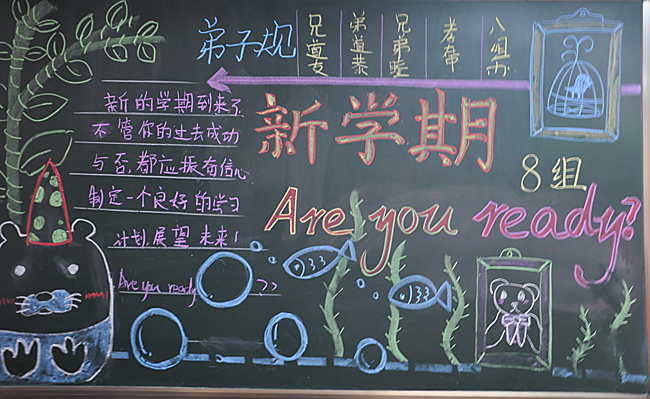 弟子规
兄道友
弟道恭
兄弟睦
孝在中
新学期
8组
Are you ready?
新的学期到来了
不管你的过去成功
与否,都应振奋信心
制定一个良好的学习
计划,展望未来!
Are you ready